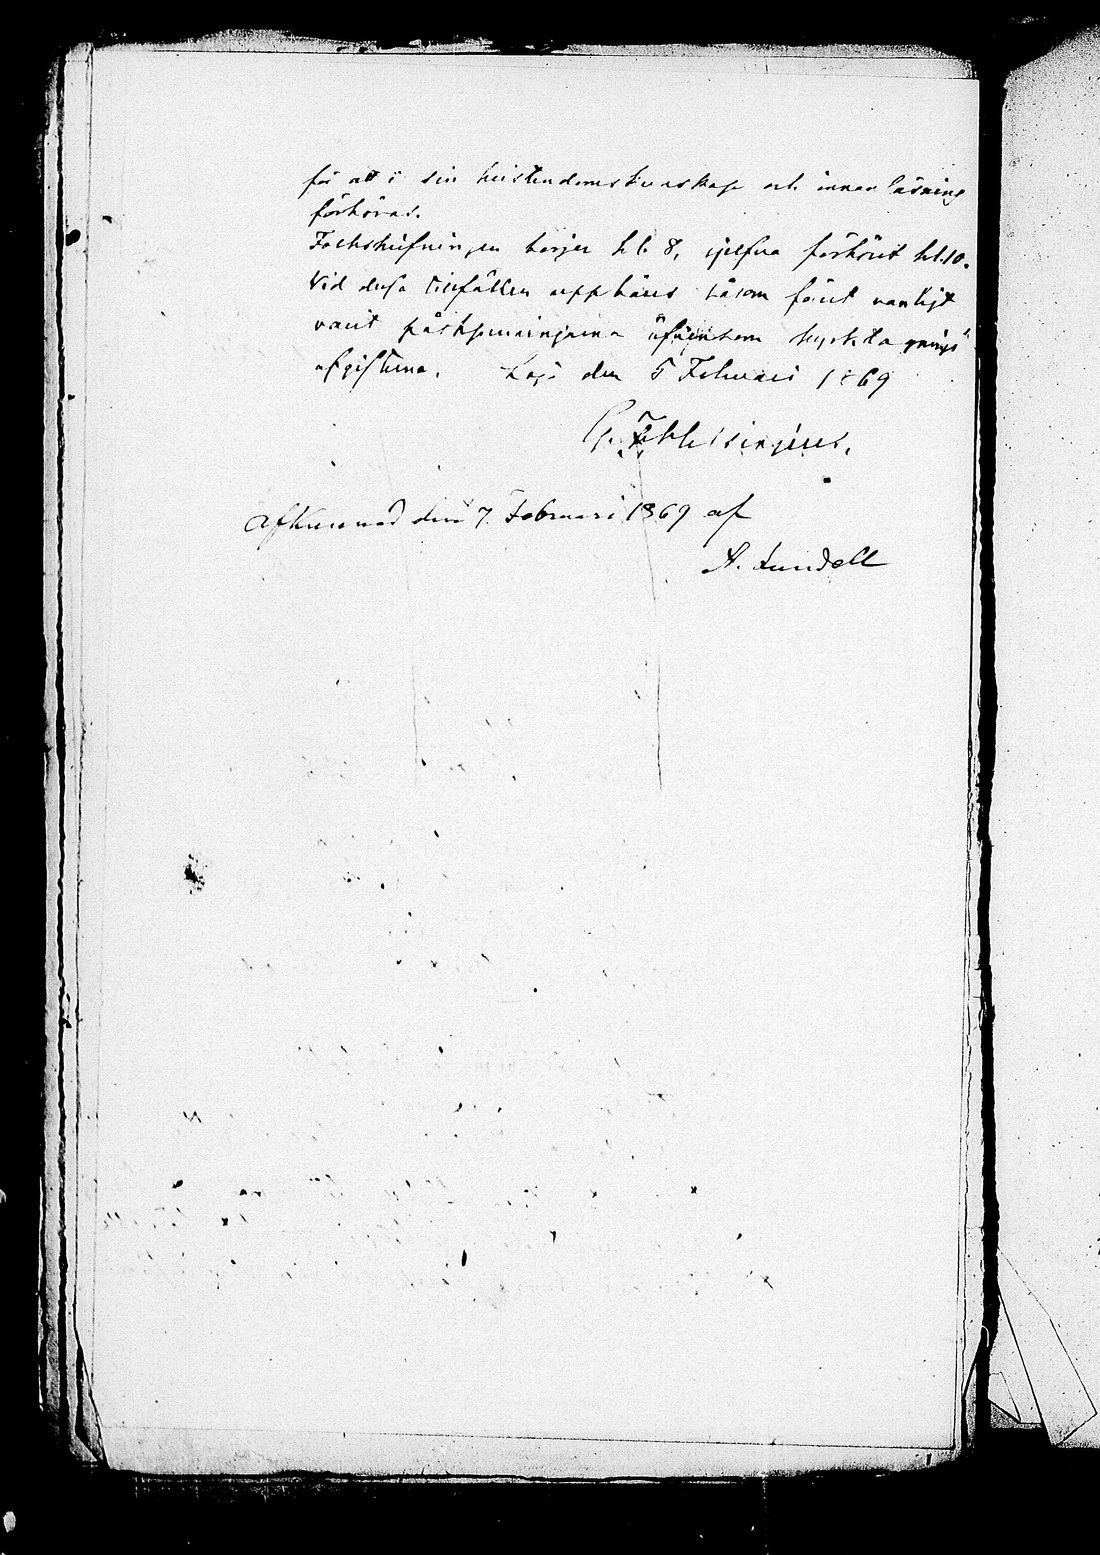 för att i sin kristendomskunskap och innanläsning
förhöras.
Folkskrifningen börjar kl. 8, sjelfva förhöret kl. 10.
Vid dessa tillfällen uppbäras såsom förut vanligt
varit påskpenningarna äfvensom kyrktagnings
afgifterna. den 5 Februari 1869
Afkunnad den 7. Februari 1869 af
A. Lundell